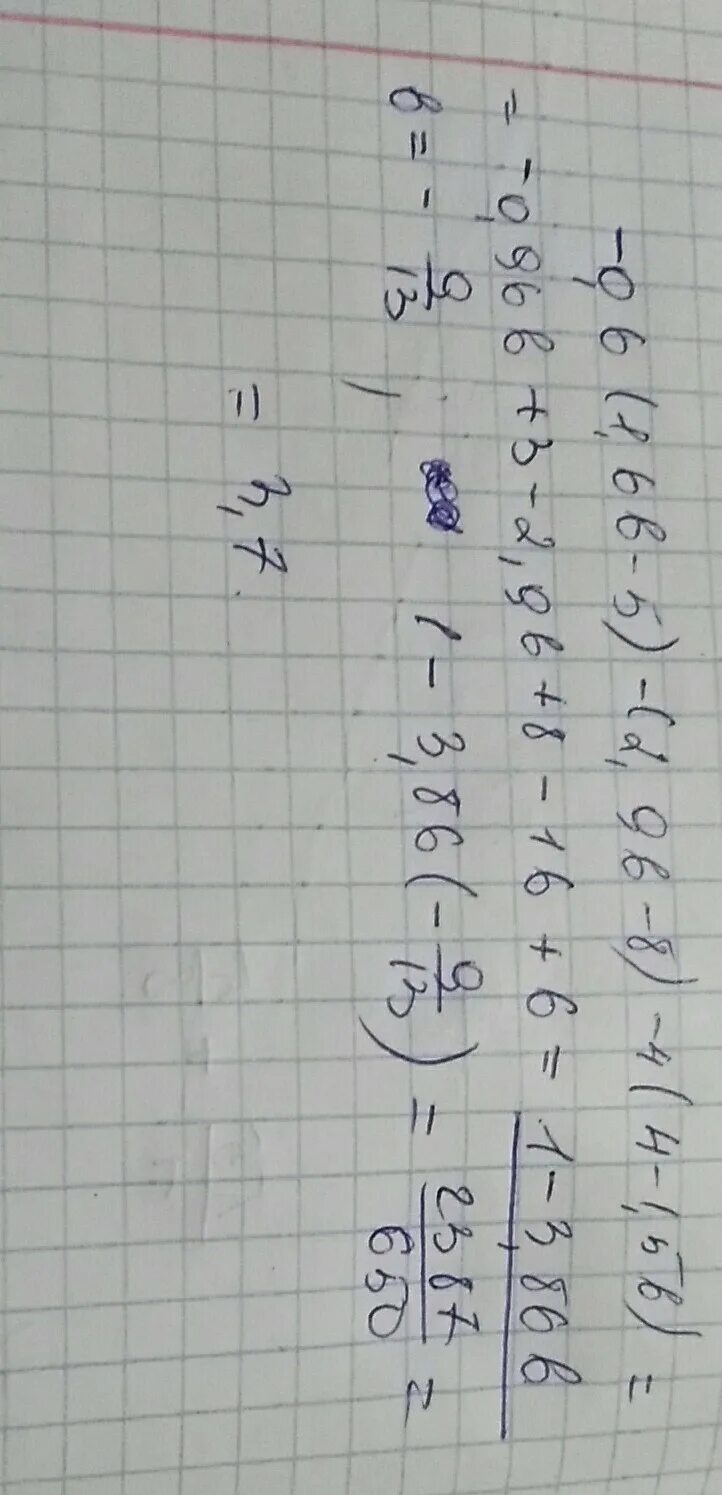 -0,6(1,6в-5)-(2,9в-8)-4(4-1,5в)=
=-0,96в+3-2,9в+8-16+6=1-3,86в
в=-9/13; 1-3,86(-9/13)=2387/650=
=3,7